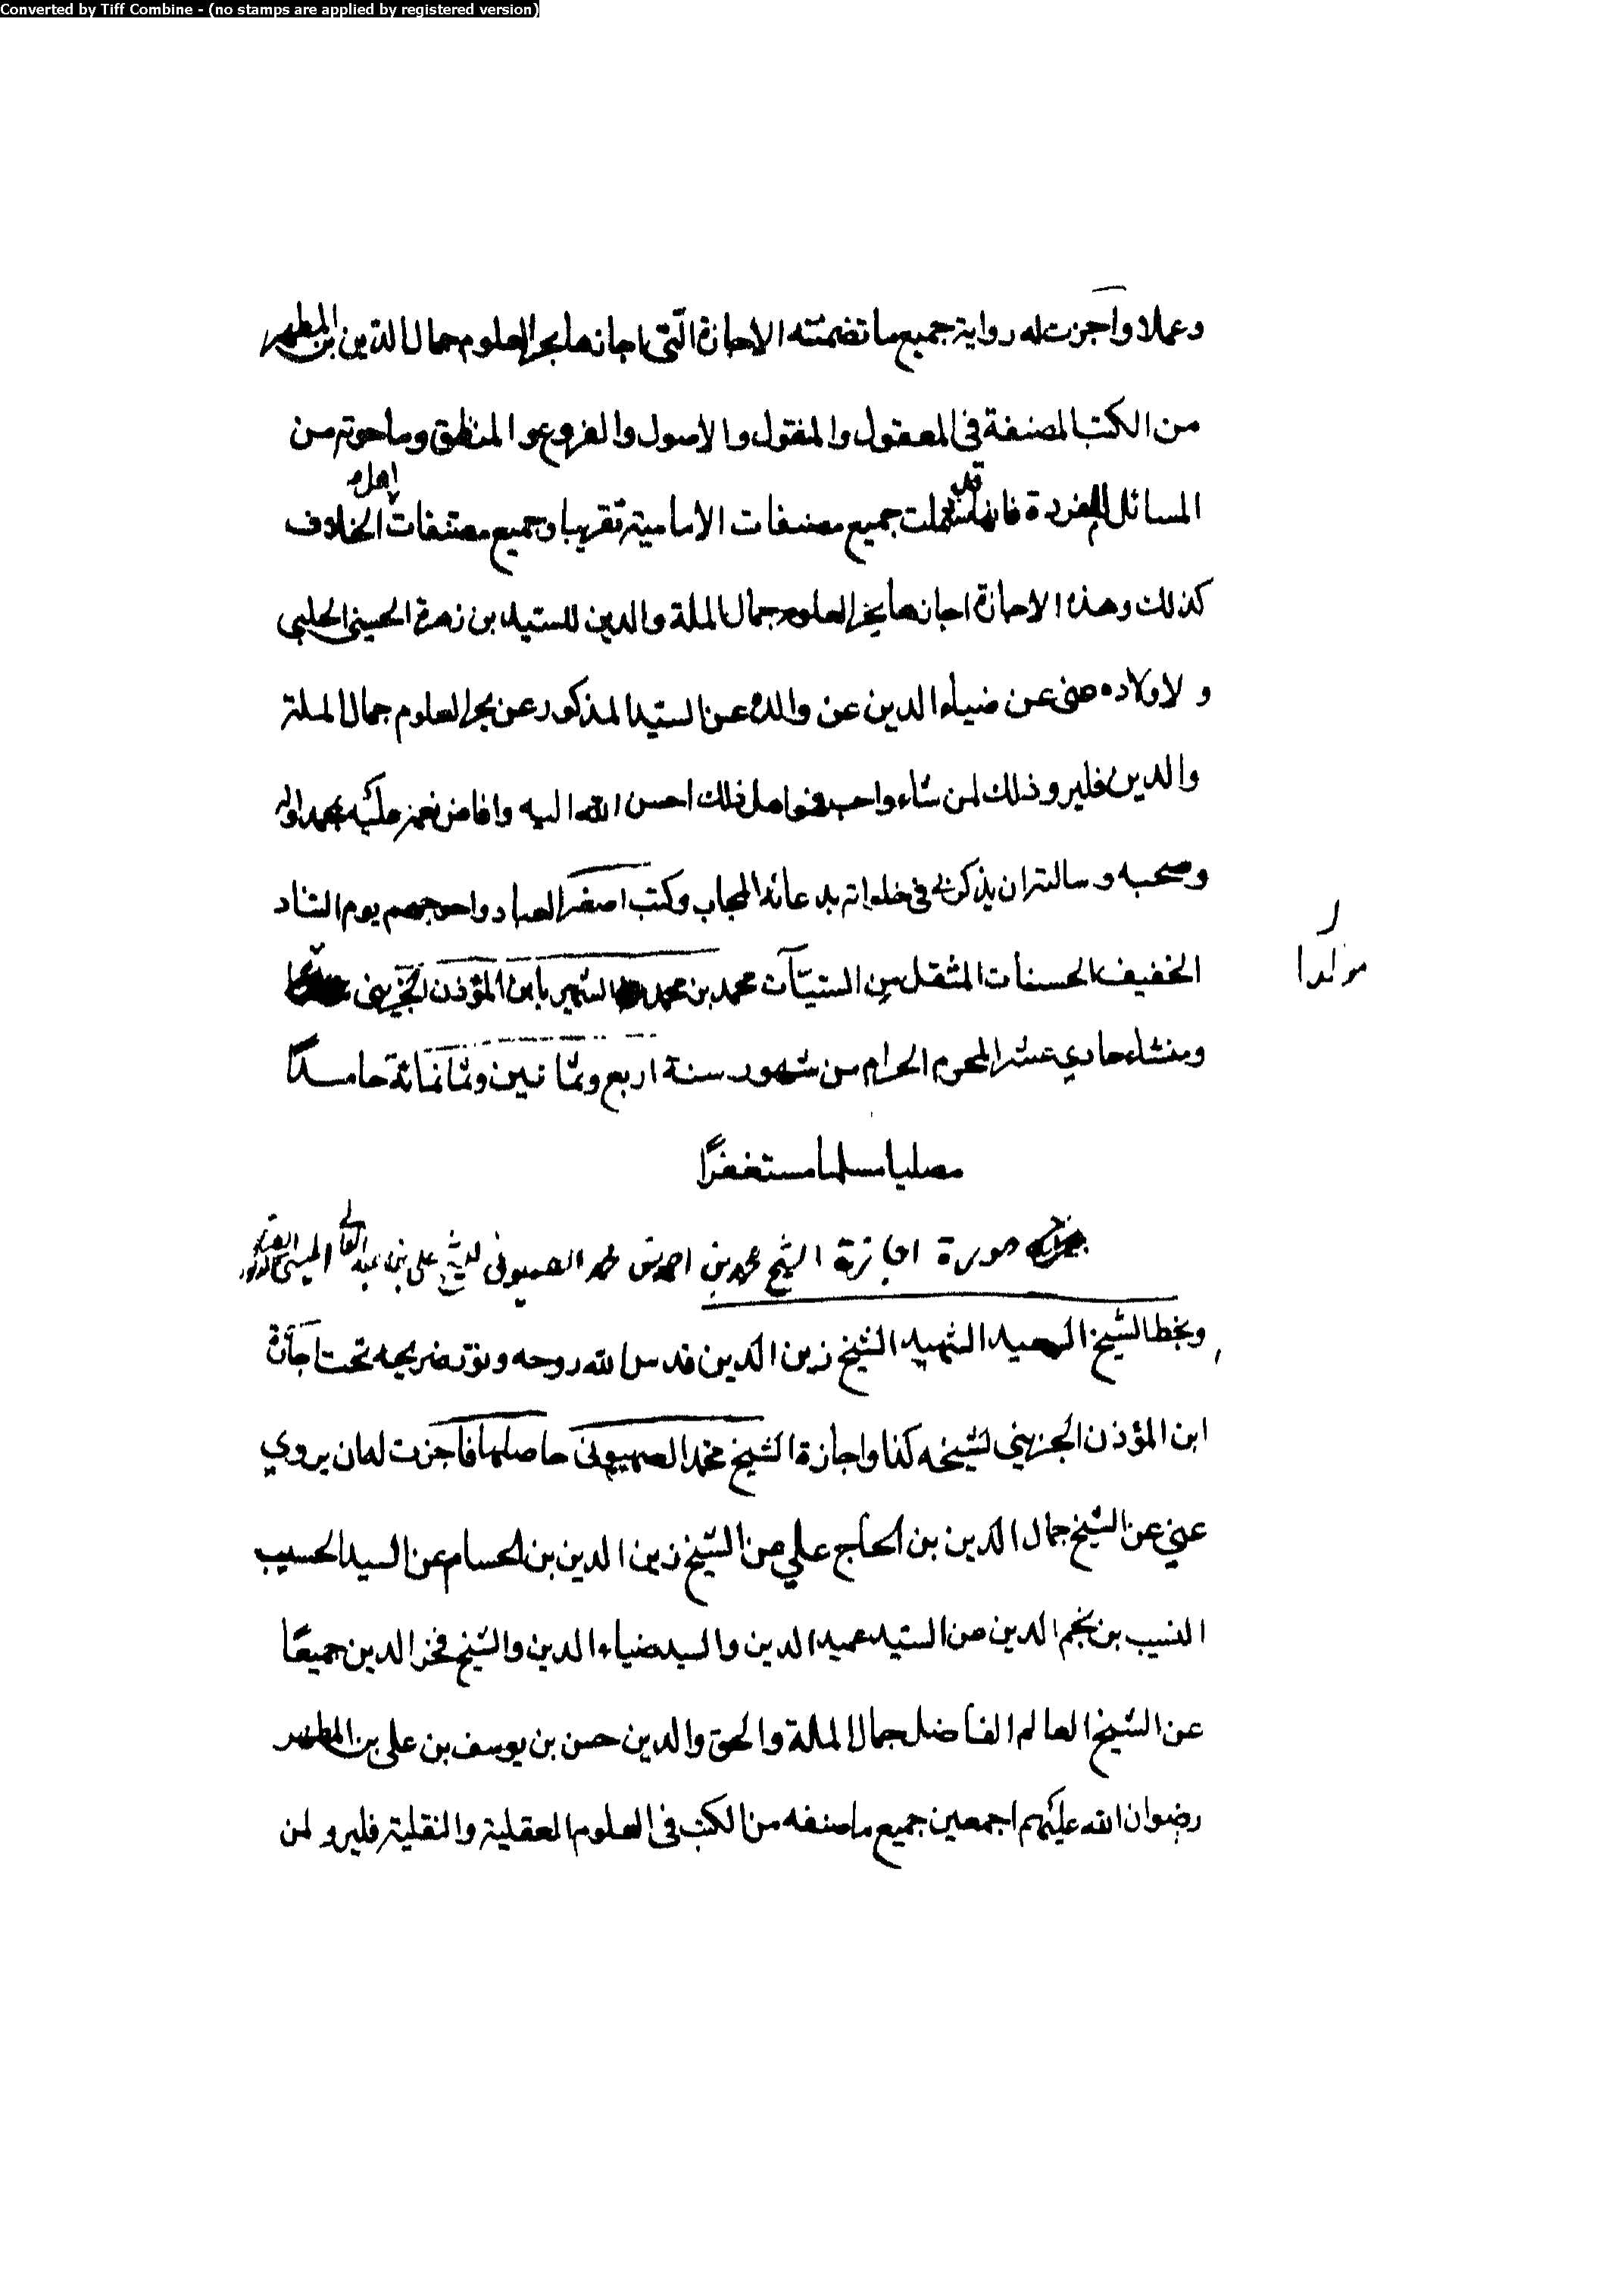 Converted by Tiff Combine - (no stamps are applied by registered version)
وعملا واجزت له رواية جميع ما تضمنته الاجازة التي اجازها بحر العلوم جمال الدين بن المطهر
من الكتب المصنفة في المعقول والمنقول والاصول والفروع والمنطق وما حوته من
المسائل المفردة فانها قد شملت جميع مصنفات الامامية تقريبا وجميع مصنفات اهل الخلاف
كذلك وهذه الاجازة اجازها بحر العلوم جمال الملة والدين للسيد بن زهرة الحسيني الحلبي
ولاولاده عني عن ضياء الدين عن والده عن السيد المذكور عن بحر العلوم جمال الملة
والدين فليرو ذلك لمن شاء واحب فهو اهل ذلك احسن الله اليه وافاض نعمه عليه بمحمد واله
وصحبه وسالته ان يذكرني في خلواته بدعائه المجاب وكتب اصغر العباد واحوجهم يوم التناد
الخفيف الحسنات المثقل من السيئات محمد بن محمد الشهير بابن المؤذن الجزيني
مولدا
ومنشاء حادي عشر المحرم الحرام من شهور سنة اربع وثمانين وثمانمائة حامدا
مصليا مسلما مستغفرًا
صورة اجازة الشيخ محمد بن احمد بن محمد الصهيوني للشيخ علي بن عبد العالي الميسي
وبخط الشيخ السعيد الشهيد الشيخ زين الدين قدس الله روحه ونور ضريحه تحت اجازة
ابن المؤذن الجزيني لشيخه كذا واجازة الشيخ محمد الصهيوني حاصلها فاجزت له ان يروي
عني عن الشيخ جمال الدين بن الحاج علي عن الشيخ زين الدين بن الحسام عن السيد الحسيب
النسيب بن نجم الدين عن السيد عميد الدين والسيد ضياء الدين والشيخ فخر الدين جميعًا
عن الشيخ العالم الفاضل جمال الملة والحق والدين حسن بن يوسف بن علي بن المطهر
رضوان الله عليهم اجمعين جميع ما صنفه من الكتب في العلوم العقلية والنقلية فليرو لمن